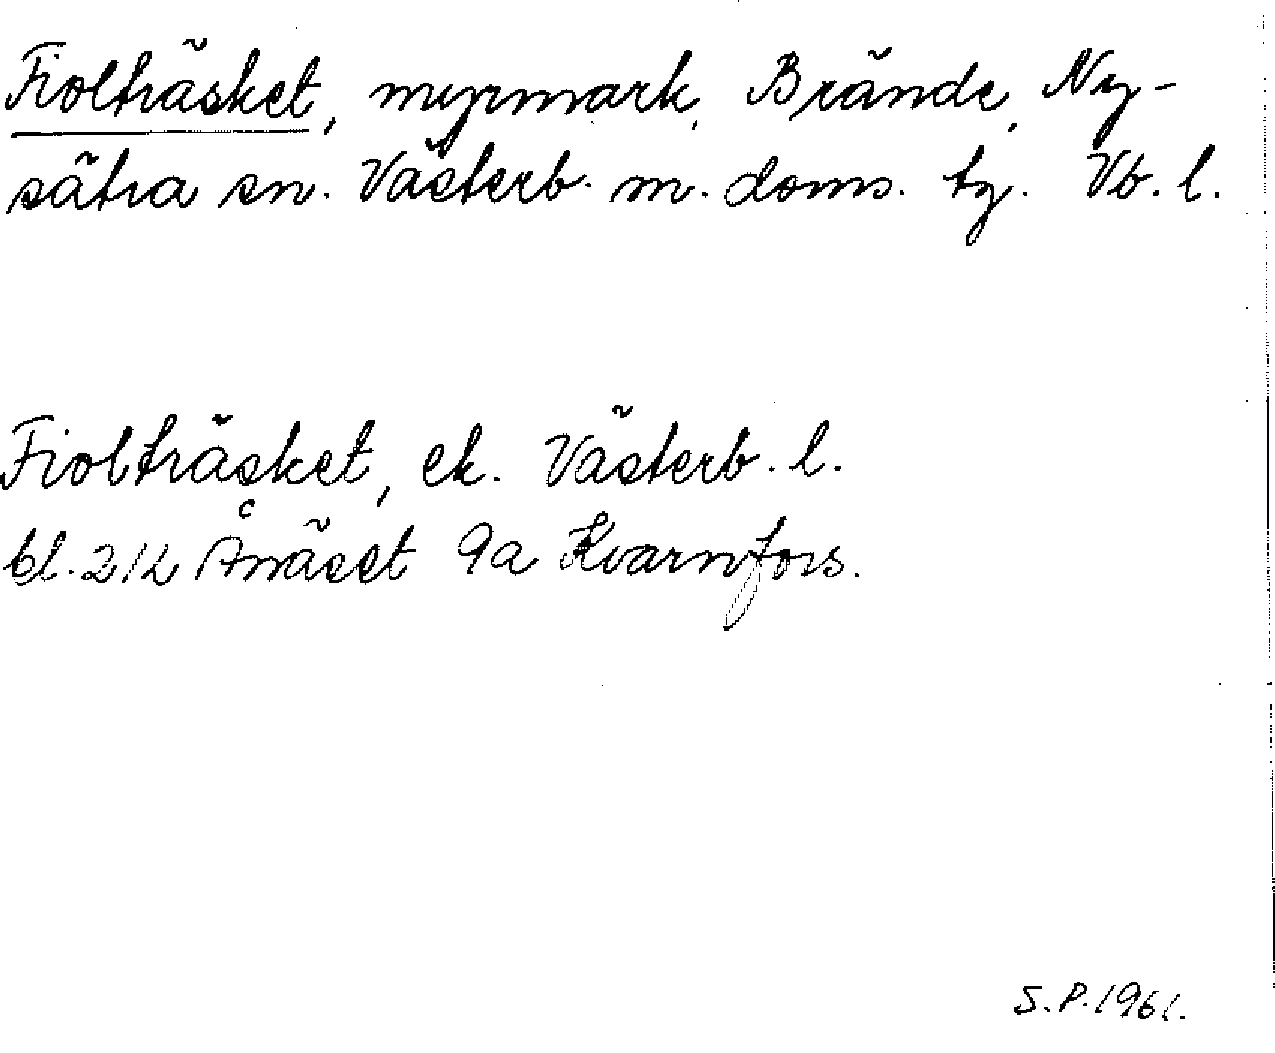 Fiolträsket, myrmark, Brände, Ny-
sätra sn. Västerb. m. doms. tg. Vb. l.
Fiolträsket, ek. Västerb. l.
bl. 21L Ånäset 9a Kvarnfors.
S.P. 1961.